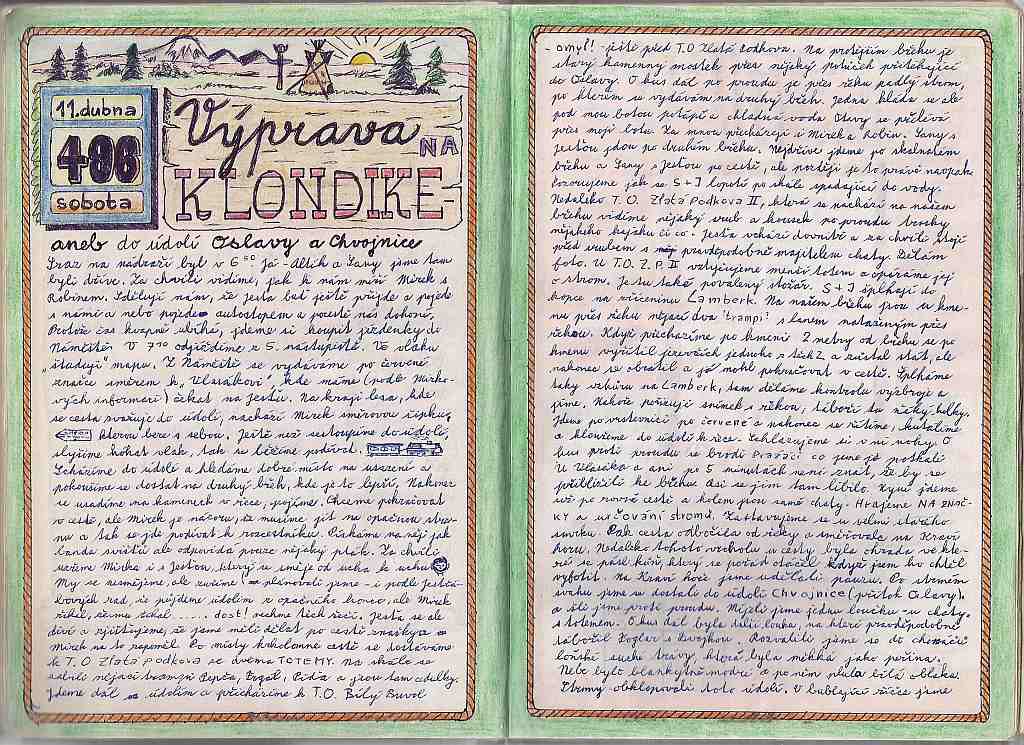 11. dubna
486
sobota
Výprava
NA
KLONDIKE-
aneb do údolí Oslavy a Chvojnice
Sraz na nádraží byl v 6⁵⁰ Já - Altík a Sany jsme tam
byli dříve. Za chvíli vidíme, jak k nám míří Mirek s
Robinem. Sdělují nám, že Jesťa buď ještě přijde a pojede
s námi a nebo pojede autostopem a pozdě nás dohoní.
Protože čas kvapně ubíhá, jdeme si koupit jízdenky do
Náměště. V 7⁰⁰ odjíždíme z 5. nástupiště. Ve vlaku
"studuji" mapu. Z Náměště se vydáváme po červené
značce směrem k Vlasákovi, kde máme (podle Mirko-
vých informací) čekat na Jesťu. Na kraji lesa, kde
se cesta svažuje do údolí, nachází Mirek směrovou šipku,
kterou bere s sebou. Ještě než sestoupíme do údolí,
slyšíme houkat vlak, tak se běžíme podívat.
Scházíme do údolí a hledáme dobré místo na usazení a
pokoušíme se dostat na druhý břeh, kde je to lepší. Nakonec
se usadíme na kamenech v řece, pojíme. Chceme pokračovat
v cestě, ale Mirek je názoru, že musíme jít na opačnou stra-
nu a tak se jde podívat k rozcestníku. Pískáme na něj jak
banda sviští ale odpovídá pouze nějaký pták. Za chvíli
vidíme Mirka i s Jesťou, který se směje od ucha k uchu
My se nesmějeme, ale zuříme plánovali jsme - i podle Jesťá-
kových rad, že půjdeme údolím z opačného konce, ale Mirek
říkal, že mu říkal ..... dost! nechme těch řečí. Jesťa se ale
diví a zjišťujeme, že jsme měli dělat po cestě značky a
Mirek na to zapoměl. Po místy krkolomné cestě se dostáváme
k T.O Zlatá podkova se dvěma TOTEMY. Na skále se
zabilo nějací trampi Pepča, Brzál, Píďa a jsou tam cedulky.
Jdeme dál údolím a přicházíme k T.O. Bílý Buvol
- omyl! - ještě před T.O Zlatá Podkova. Na protějším břehu je
starý kamenný mostek přes nějaký potůček přitékající
do Oslavy. O kus dál po proudu je přes řeku padlý strom,
po kterém se vydávám na druhý břeh. Jedna kláda se ale
pod mou botou potápí a chladná voda Oslavy se přelévá
přes moji botu. Za mnou přecházejí i Mirek a Robin. Sany s
Jesťou jdou po druhém břehu. Nejdříve jdeme po skalnatém
břehu a Sany s Jesťou po cestě, ale později je to právě naopak.
Pozorujeme jak se S+J lopotí po skále spadající do vody.
Nedaleko T.O. Zlatá Podkova II, která se nachází na našem
břehu vidíme nějaký srub a kousek po proudu trosky
nějakého kajáku či co. Jesťa vchází dovnitř a za chvíli stojí
před srubem s pravděpodobně majitelem chaty. Dělám
foto. U T.O. Z.P. II vztyčujeme menší totem a opíráme jej
o strom. Je tu také povalený stožár. S+J šplhají do
kopce na zříceninu Lamberk. Na našem břehu jsou u kme-
nu přes řeku nějací dva "trampi" s lanem nataženým přes
řekou. Když přecházíme po kmeni 2 metry od břehu se po
kmenu vyřítil jezevčík jednoho s těch 2 a zůstal stát, ale
nakonec se obrátil a já mohl pokračovat v cestě. Šplháme
taky vzhůru na Lamberk, tam děláme kontrolu výzbroje a
jíme. Nahoře pořizuji snímek s řekou, táboří tu nějaký holky.
Jdeme po vrstevnici po červené a nakonec se řítíme, kutálíme
a kloužeme do údolí k řece. Schlazujeme si v ní nohy. O
kus proti proudu se brodí Pražáci co jsme je potkali
U Vlasáka a ani po 5 minutách není znát, že by se
přiblížili ke břehu. Asi se jim tam líbilo. Nyní jdeme
už po nové cestě a kolem jsou samé chaty. Hrajeme NA ZNAČ-
KY a určování stromů. Zastavujeme se u velmi starého
smrku. Pak cesta odbočila od řeky a směřovala na Kraví
horu. Nedaleko tohoto vrcholu u cesty byla ohrada ve kte-
ré se pásl kůň, který se pořád otáčel když jsem ho chtěl
vyfotit. Na Kraví hoře jsme udělali pauzu. Po strmém
svahu jsme se dostali do údolí Chvojnice (přítok Oslavy)
a šli jsme proti proudu. Míjeli jsme jednu loučku - u chaty
s totemem. O kus dál byla další louka, na které pravděpodobně
tábořil Foglar s Dvojkou. Rozvalili jsme se do chomáčů
loňské suché trávy, která byla měkká jako peřina.
Nebe bylo blankytně modré a po něm plula bílá oblaka.
Stromy obklopovali toto údolí. V bublající říčce jsme